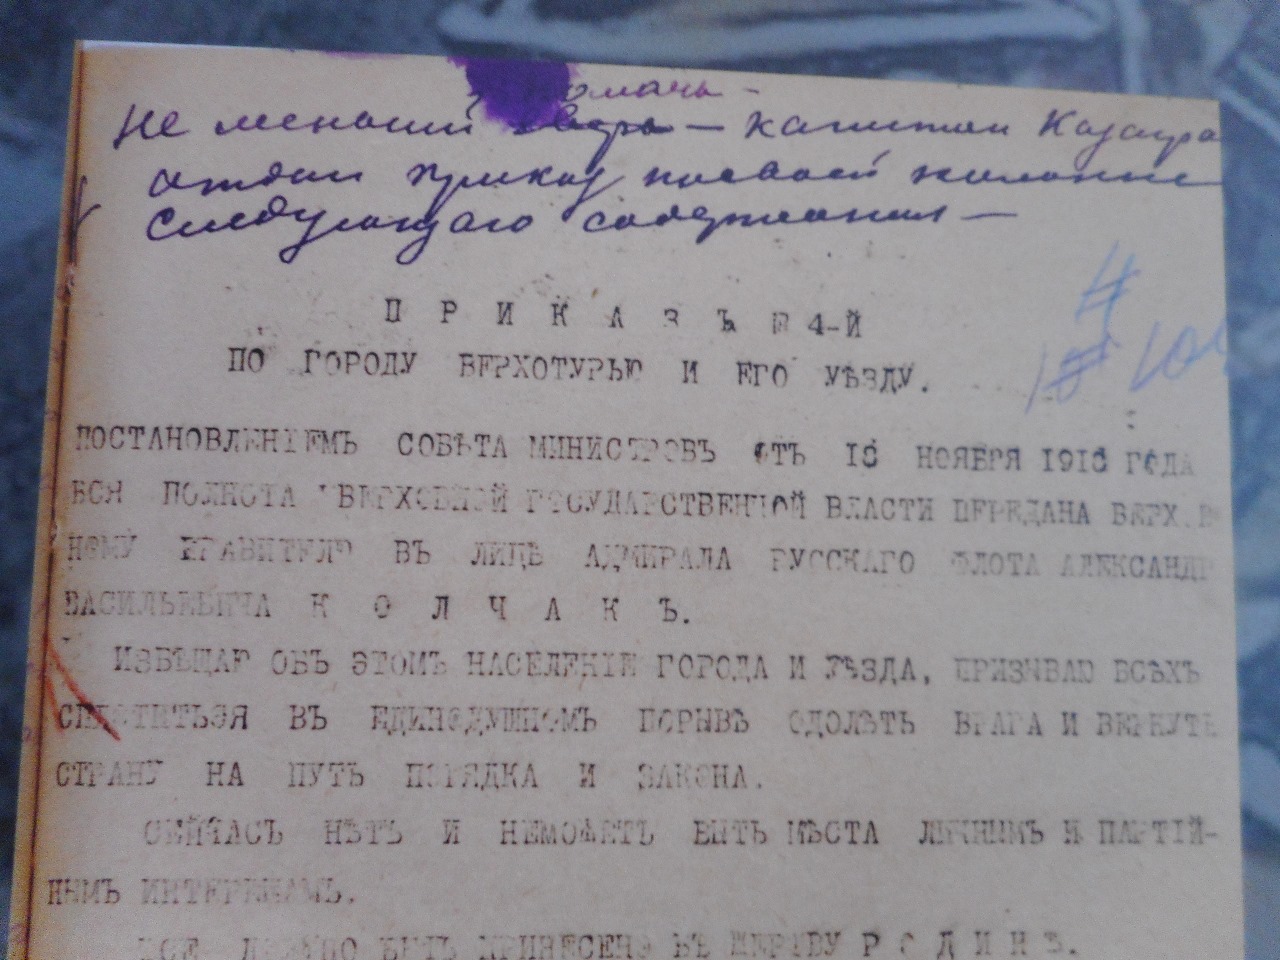 Не меньший — капитан Казагра
отдал приказ
следующаго содержания —
П Р И К А З Ъ № 4-Й
ПО ГОРОДУ ВЕРХОТУРЬЮ И ЕГО УѢЗДУ.
ПОСТАНОВЛЕНІЕМЪ СОВѢТА МИНИСТРОВЪ ОТЪ 18 НОЯБРЯ 1918 ГОДА
ВСЯ ПОЛНОТА ВЕРХОВНОЙ ГОСУДАРСТВЕННОЙ ВЛАСТИ ПЕРЕДАНА ВЕРХОВ
НОМУ ПРАВИТЕЛЮ ВЪ ЛИЦѢ АДМИРАЛА РУССКАГО ФЛОТА АЛЕКСАНДР
ВАСИЛЬЕВИЧА К О Л Ч А К Ъ.
ИЗВѢЩАЮ ОБЪ ЭТОМЪ НАСЕЛЕНІЕ ГОРОДА И УѢЗДА, ПРИЗЫВАЮ ВСѢХЪ
СПЛОТИТЬСЯ ВЪ ЕДИНОДУШНОМЪ ПОРЫВѢ ОДОЛѢТЬ ВРАГА И ВЕРНУТЬ
СТРАНУ НА ПУТЬ ПОРЯДКА И ЗАКОНА.
СЕЙЧАСЪ НѢТЪ И НЕМОЖЕТЪ БЫТЬ МѢСТА ЛИЧНЫМЪ И ПАРТІЙ-
НЫМЪ ИНТЕРЕСАМЪ.
ВСЕ ДОЛЖНО БЫТЬ ПРИНЕСЕНО ВЪ ЖЕРТВУ Р О Д И Н Ѣ.